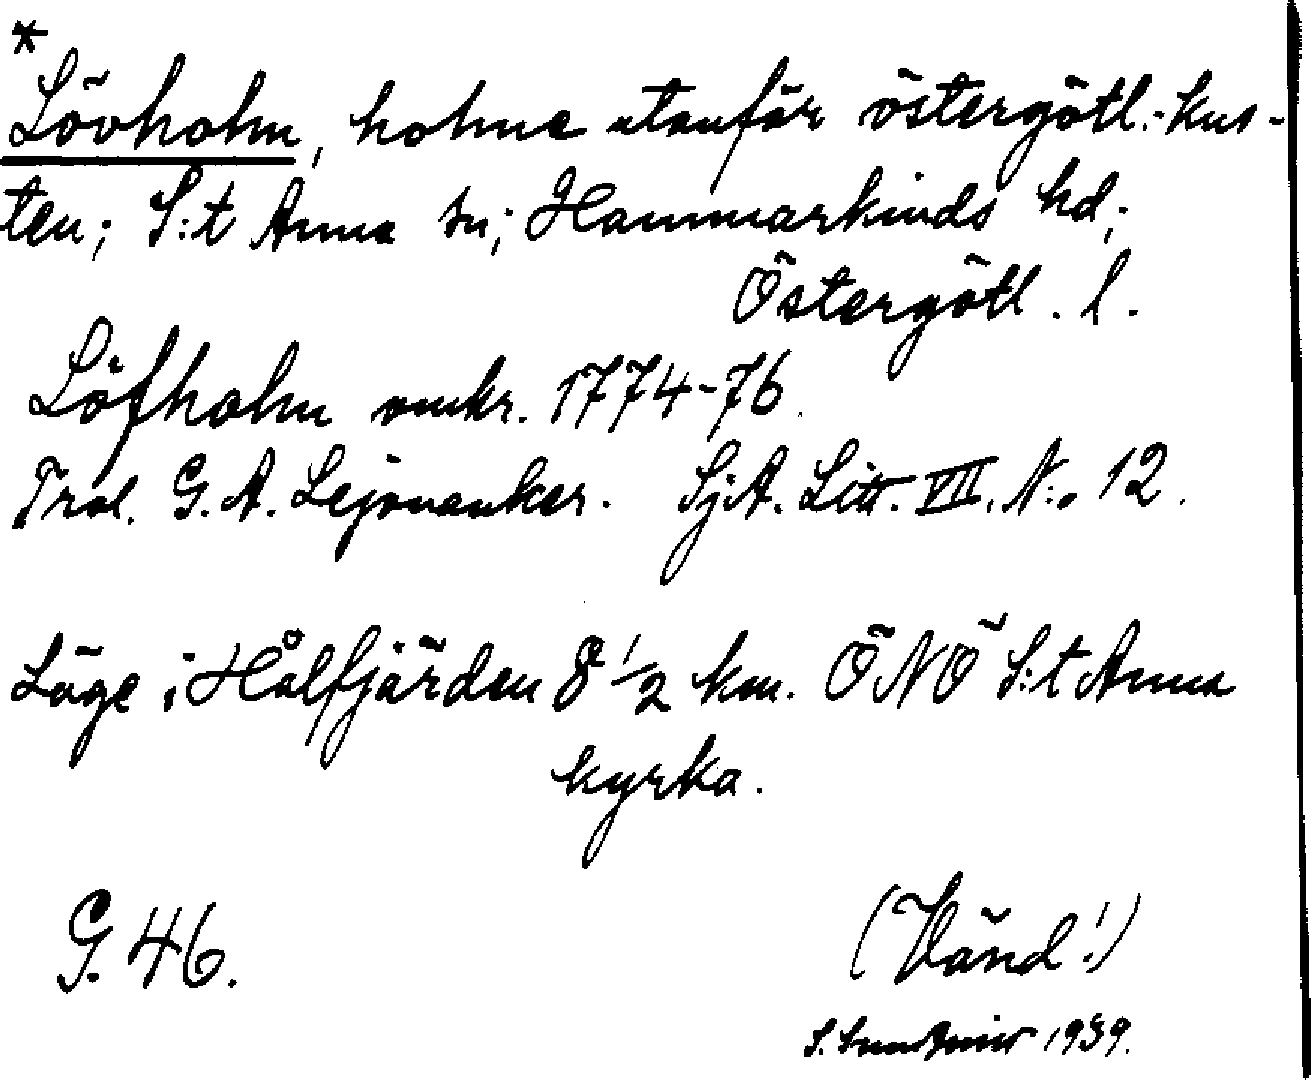 *
Lövholm, holme utanför östergötl. kus-
ten; S:t Anna sn; Hammarkinds hd;
Östergötl. l.
Löfholm omkr. 1774-76.
Trol. G. A. Lejonanker. SjA. Litt. VII. N:o 12.
Läge i Hålfjärden 8 1/2 km. ÖNÖ S:t Anna
kyrka.
G. 46.
(Vänd!)
S. 1939.